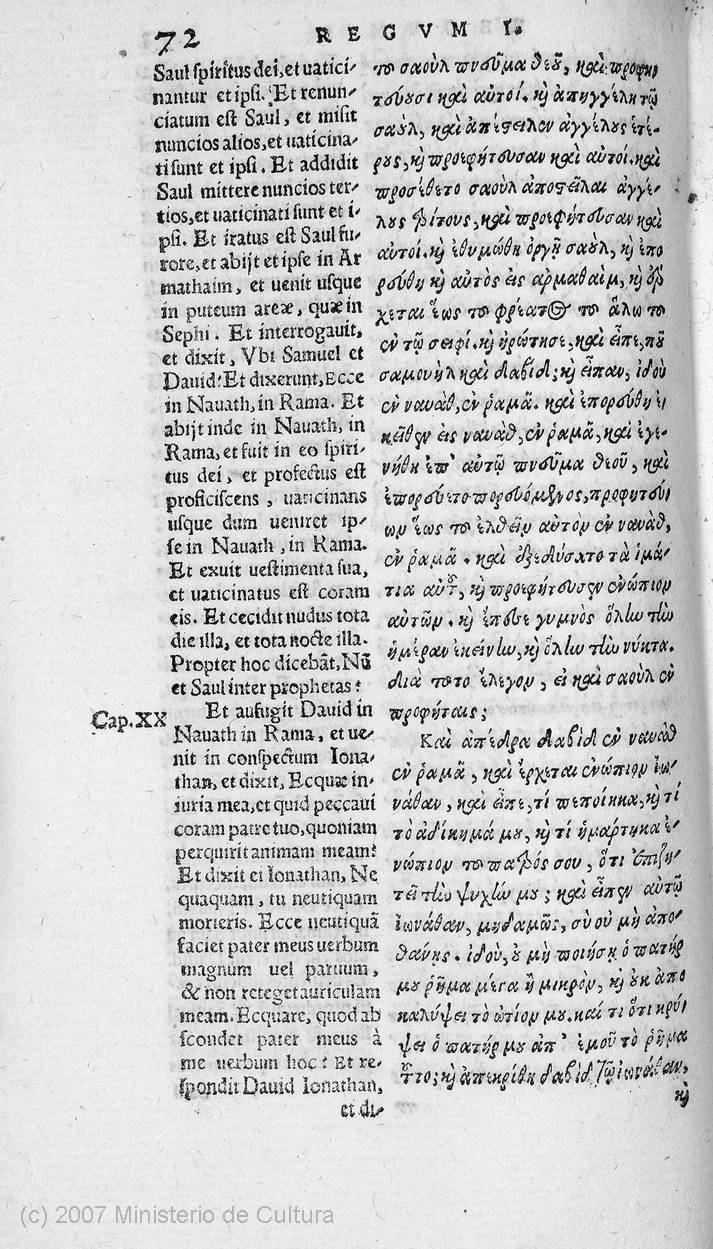 72 REGVM I.
Saul spiritus dei, et uatici-
nantur et ipsi. Et renun-
ciatum est Saul, et misit
nuncios alios, et uaticina-
ti sunt et ipsi. Et addidit
Saul mittere nuncios ter-
tios, et uaticinati sunt et i-
psi. Et iratus est Saul fu-
rore, et abijt et ipse in Ar
mathaim, et uenit usque
in puteum areæ, quæ in
Sephi. Et interrogauit,
et dixit, Vbi Samuel et
Dauid? Et dixerunt, Ecce
in Nauath, in Rama. Et
abijt inde in Nauath, in
Rama, et fuit in eo spiri-
tus dei, et profectus est
proficiscens, uaticinans
usque dum ueniret ip-
se in Nauath, in Rama.
Et exuit uestimenta sua,
et uaticinatus est coram
eis. Et cecidit nudus tota
die illa, et tota nocte illa.
Propter hoc dicebãt, Nũ
et Saul inter prophetas?
Cap.XX
Et aufugit Dauid in
Nauath in Rama, et ue-
nit in conspectum Iona-
than, et dixit, Ecquæ in-
iuria mea, et quid peccaui
coram patre tuo, quoniam
perquirit animam meam?
Et dixit ei Ionathan, Ne
quaquam, tu neutiquam
morieris. Ecce neutiquã
faciet pater meus uerbum
magnum uel paruum,
& non reteget auriculam
meam. Ecquare, quod ab
scondet pater meus à
me uerbum hoc? Et re-
spondit Dauid Ionathan,
et di-
το σαοὺλ πνεῦμα θεοῦ, καὶ προφη
τεύουσι καὶ αὐτοί. κὶ ἀπηγγέλη τῷ
σαοὺλ, καὶ ἀπέστειλεν ἀγγέλους ἑτέ-
ρους, κὶ προεφήτευσαν καὶ αὐτοί. καὶ
προσέθετο σαοὺλ ἀποστεῖλαι ἀγγέ-
λους τρίτους, καὶ προεφήτευσαν καὶ
αὐτοί. κὶ ἐθυμώθη ὀργῇ σαοὺλ, κὶ ἐπο
ρεύθη κὶ αὐτὸς εἰς αρμαθαὶμ, κὶ ἔρ
χεται ἕως του φρέατος του ἅλω του
ἐν τῷ σειφί. κὶ ἠρώτησε, καὶ εἶπε, ποῦ
σαμουὴλ καὶ δαβίδ; κὶ εἶπαν, ἰδοὺ
ἐν ναυὰθ, ἐν ῥαμᾶ. καὶ ἐπορεύθη ἐ
κεῖθεν εἰς ναυὰθ, ἐν ῥαμᾶ, καὶ ἐγε-
νήθη ἐπ' αὐτῷ πνεῦμα θεοῦ, καὶ
ἐπορεύετο πορευόμενος, προφητεύ
ων ἕως του ἐλθεῖν αὐτὸν ἐν ναυὰθ,
ἐν ῥαμᾶ. καὶ ἐξεδύσατο τὰ ἱμά-
τια αὐτοῦ, κὶ προεφήτευσεν ἐνώπιον
αὐτῶν. κὶ ἔπεσε γυμνὸς ὅλην τὴν
ἡμέραν ἐκείνην, κὶ ὅλην τὴν νύκτα.
διὰ τουτο ἔλεγον, εἰ καὶ σαοὺλ ἐν
προφήταις;
Καὶ ἀπέδρα δαβὶδ ἐν ναυὰθ
ἐν ῥαμᾶ, καὶ ἔρχεται ἐνώπιον ἰω-
νάθαν, καὶ εἶπε, τί πεποίηκα, κὶ τί
τὸ ἀδίκημά μου, κὶ τί ἡμάρτηκα ἐ-
νώπιον του πατρός σου, ὅτι ἐπιζη-
τεῖ τὴν ψυχήν μου; καὶ εἶπεν αὐτῷ
ἰωνάθαν, μηδαμῶς, σὺ οὐ μὴ ἀπο-
θάνῃς. ἰδοὺ, οὐ μὴ ποιήσῃ ὁ πατήρ
μου ῥῆμα μέγα ἢ μικρὸν, κὶ οὐκ ἀπο
καλύψει τὸ ὠτίον μου. καί τι ὅτι κρύ
ψει ὁ πατήρ μου ἀπ' ἐμοῦ τὸ ῥῆμα
τοῦτο; κὶ ἀπεκρίθη δαβὶδ τῷ ἰωνάθαν,
κὶ
(c) 2007 Ministerio de Cultura